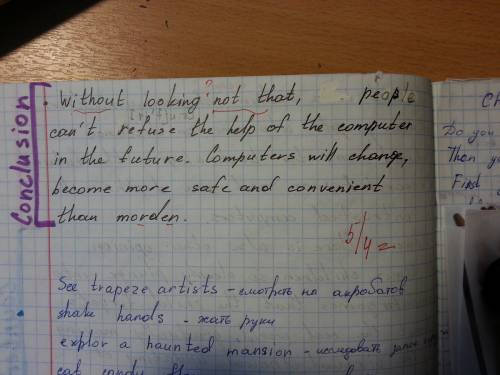 Conclusion
Without looking not that, people
can't refuse the help of the computer
in the future. Computers will change,
become more safe and convenient
than morden.
5/4=
See trapeze artists - смотреть на акробатов
shake hands - жать руки
explor a haunted mansion - исследовать
eat
Ch
Do you
Then y
First